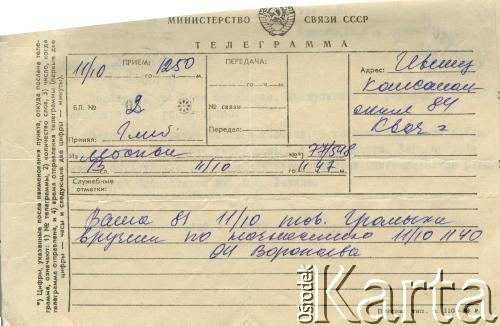 МИНИСТЕРСТВО СВЯЗИ СССР
ТЕЛЕГРАММА
ПРИЕМ:
11/10 1250
го ч. м.
БЛ. № 2
Принял:
ПЕРЕДАЧА:
го ч. м.
№ связи
Передал:
Адрес: Ивенец
84
Из Москвы № *)
сл. 11/10 го 11 47 м.
Служебные отметки:
Ваша 81 11/10 тов. Громыки
вручили по назначению 11/10 1140
*) Цифры, указанные после наименования пункта, откуда послана теле-
грамма, означают: 1) № телеграммы, 2) количество слов, 3) число, когда
телеграмма отправлена, и 4) время отправления телеграммы (первые две
цифры — часы и следующие две цифры — минуты).
ośrodek
Karta